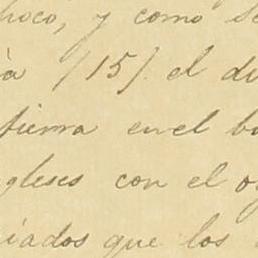 hoco, y como se
ia (15) el di
tierra en el b
gleses con el o
iados que los